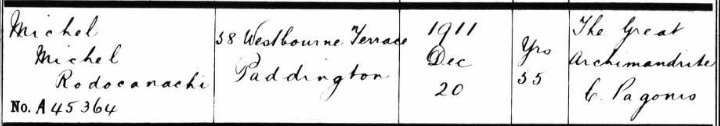 Michel
Michel
Rodocanachi
No. A 45364
58 Westbourne Terrace
Paddington
1911
Dec
20
Yrs
55
The Great
Archimandrite
C. Pagonis